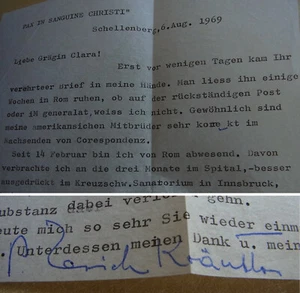 PAX IN SANGUINE CHRISTI"
Schellenberg,6.Aug. 1969
Liebe Grägin Clara!
Erst vor wenigen Tagen kam Ihr
verehrter Brief in meine Hände. Man liess ihn einige
Wochen in Rom ruhen, ob auf der rückständigen Post
oder iM generalat,weiss ich nicht. Gewöhnlich sind
meine amerikansichen Mitbrüder sehr korrekt im
Nachsenden von Corespondenz.
Seit 14 Februar bin ich von Rom abwesend. Davon
verbrachte ich an die drei Monate im Spital,-besser
ausgedrückt im Kreuzschw.Sanatorium in Innsbruck,
Substanz dabei
eute mich so sehr Sie wieder einm
. Unterdessen meinen Dank u. mein
Kräutler